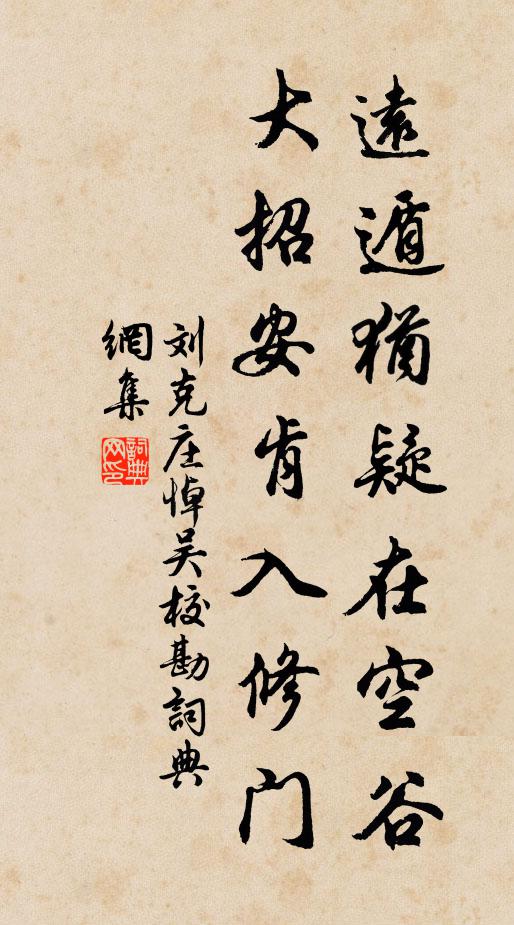 遠遁猶疑在空谷
大招安肯入修門
刘克庄悼吴校勘詞典
網集
詞典网印